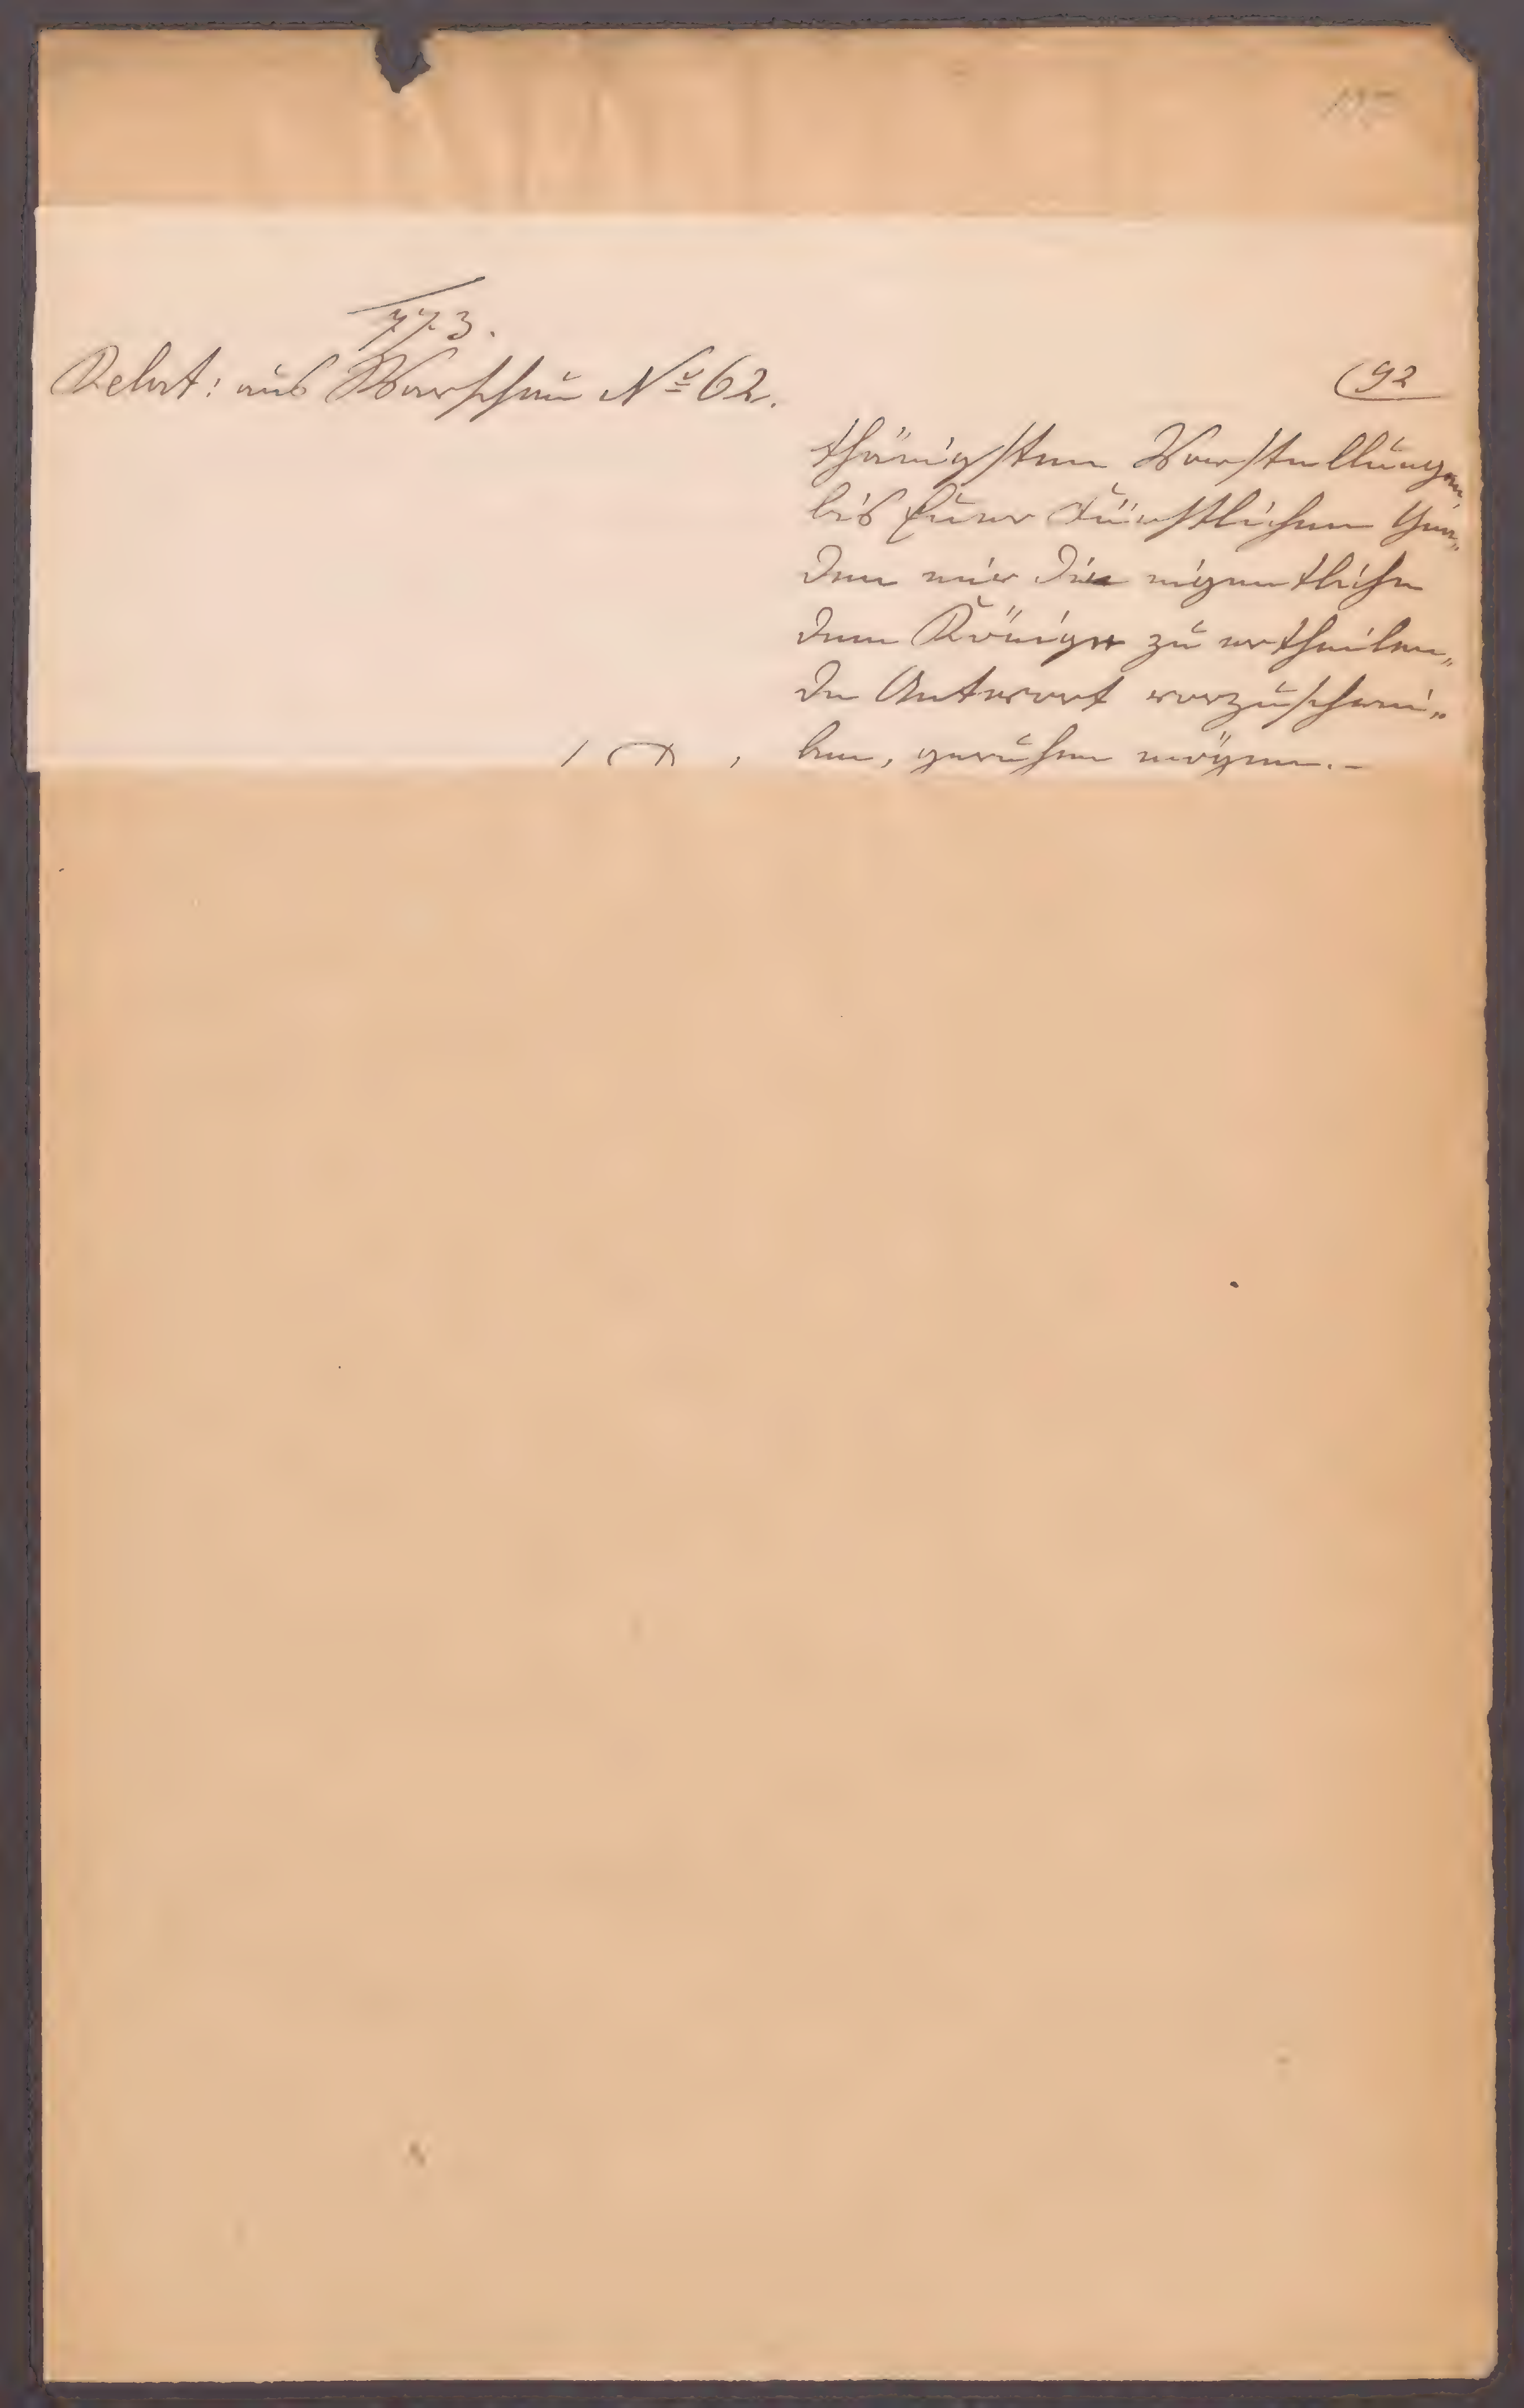 773.
Relat: aus Warschau No 62.
(92
thänigsten Vorstellungen,
bis Euer Fürstlichen Gna„
den mir die eigentliche
dem Könige zu ertheilen„
de Antwort vorzuschrei„
ben, geruhen mögen.–